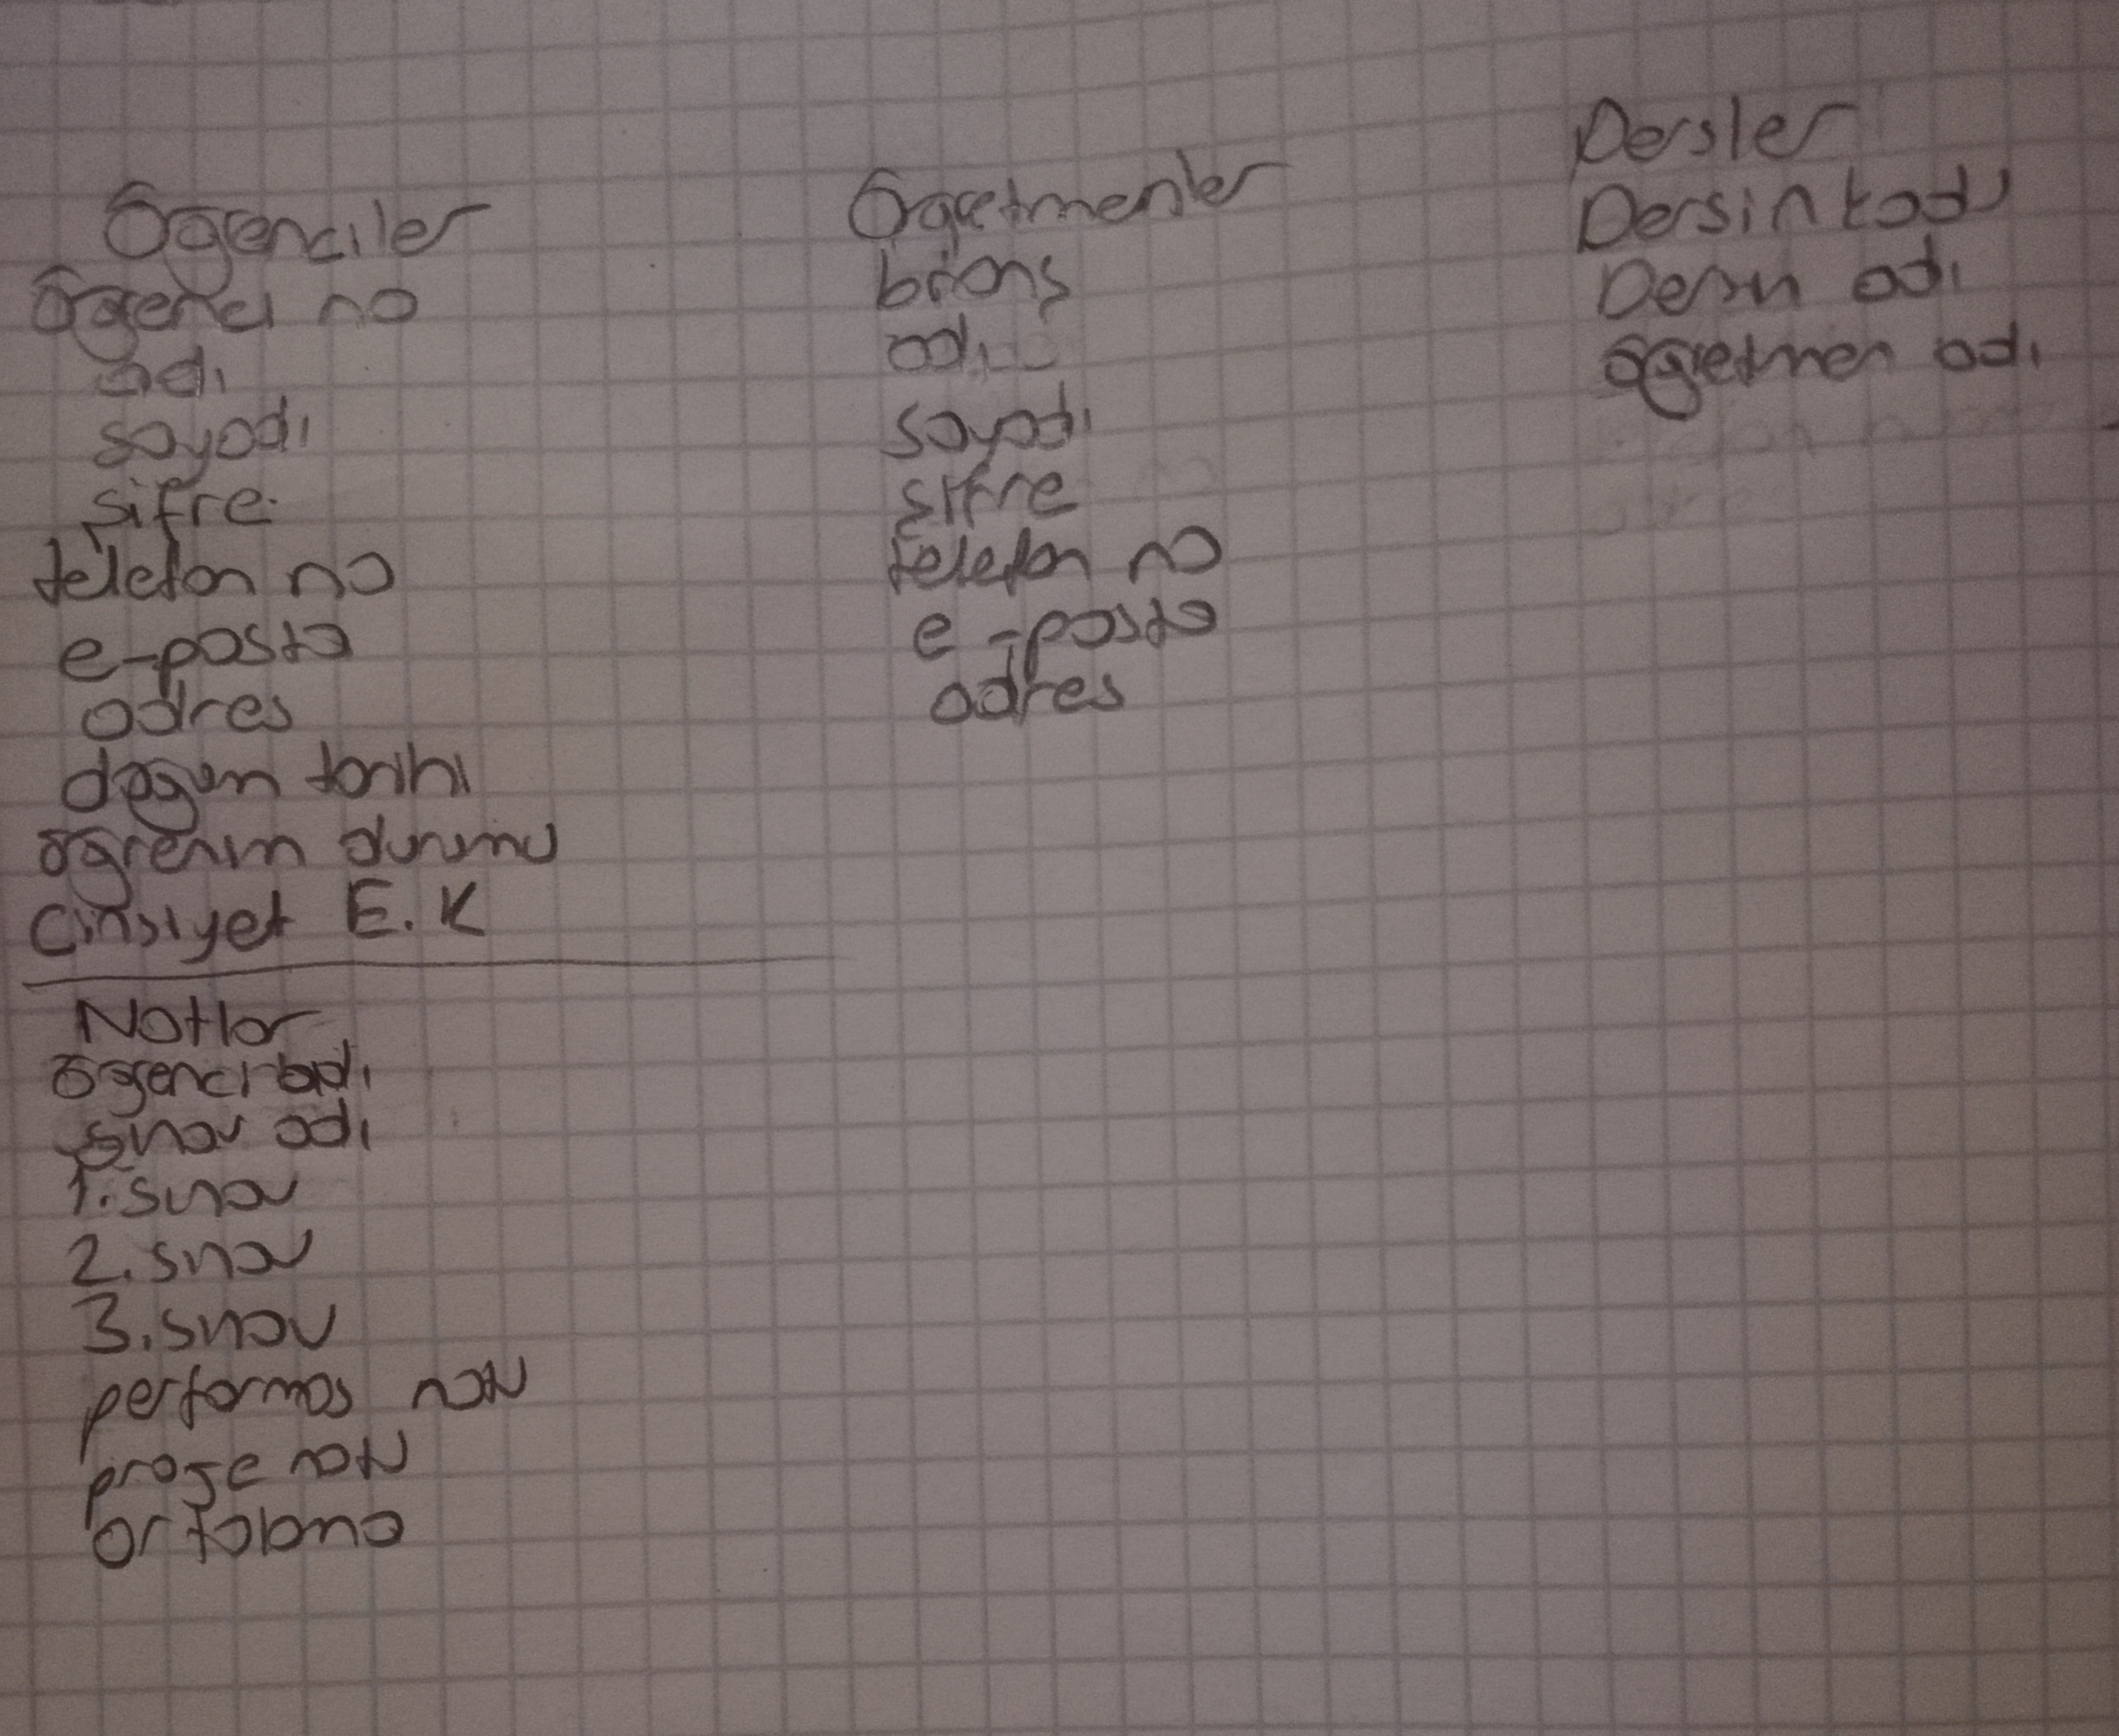 Öğrenciler
Öğrenci no
adı
soyadı
şifre
telefon no
e-posta
adres
doğum tarihi
öğrenim durumu
Cinsiyet E.K
Notlar
öğrenci adı
sınav adı
1. sınav
2. sınav
3. sınav
performas notu
proje notu
ortalama
Öğretmenler
branş
adı
soyadı
şifre
telefon no
e-posta
adres
Dersler
Dersin kodu
Dersin adı
öğretmen adı